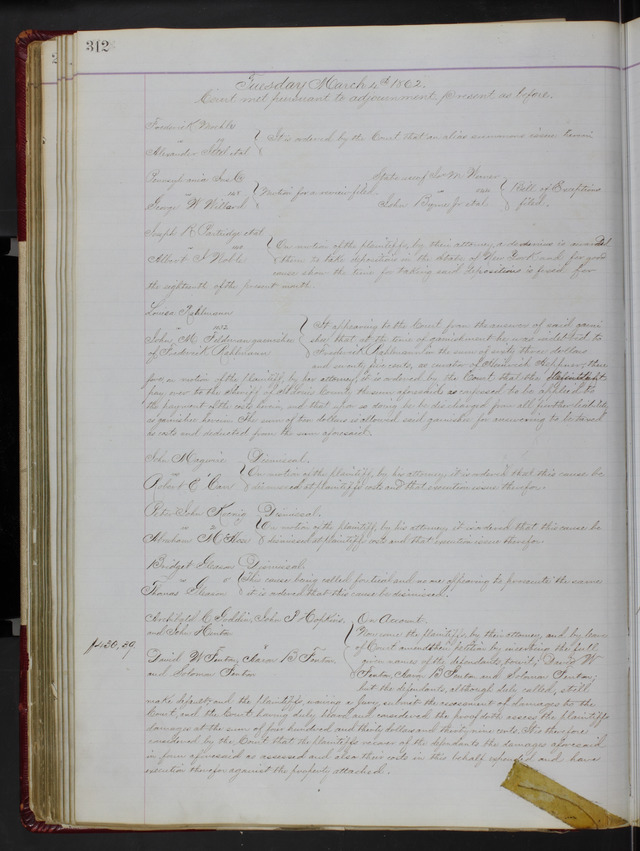 312
Tuesday March 4th 1862.
Court met pursuant to adjournment, present as before.
Frederick
vs It is ordered by the Court that an alias summons issue herein
Alexander et al
Ins Co State use of Wm
vs Motion for a review filed. vs Bill of Exceptions
George W Willard John Byrne Jr et al filed.
Joseph R Partridge et al
vs On motion of the plaintiffs, by their attorney, a dedimus is awarded
Albert S Noble them to take depositions in the State of New York and for good
cause shown the time for taking said depositions is fixed for
the eighteenth of the present month.
Louisa Rehlmann
vs It appearing to the Court from the answer of said garni
John M. Feldman garnishee shee, that at the time of garnishment he was indebted to
of Frederick Rehlmann Frederick Rehlmann in the sum of sixty three dollars
and ninety five cents, as curator of there
fore, on motion of the plaintiff, by her attorney, it is ordered by the Court that the
pay over to the Sheriff of St Louis County the sum aforesaid as confessed to be applied to
the payment of the costs herein, and that upon so doing he be discharged from all further liability
as garnishee herein. The sum of ten dollars is allowed said garnishee for answering to be taxed
as costs and deducted from the sum aforesaid.
John Maguire Dismissal.
vs On motion of the plaintiff, by his attorney it is ordered that this cause be
Robert E Carr dismissed at plaintiffs costs and that execution issue therefor.
Peter John Koenig Dismissal.
vs On motion of the plaintiff, by his attorney, it is ordered that this cause be
Abraham McKee dismissed at plaintiffs costs and that execution issue therefor
Bridget Gleason Dismissal.
vs This cause being called for trial and no one appearing to prosecute the same
Thomas Gleason it is ordered that this cause be dismissed.
Archibald C Goddin, John F Hopkins, On Account.
and John Hinton Now come the plaintiffs by their attorney, and by leave
430.39. vs of Court amend their petition by inserting the full
David W Fenton, Aaron B Fenton given names of the defendants, to wit; David W
and Solomon Fenton Fenton, Aaron B Fenton and Solomon Fenton;
but the defendants, although duly called, still
make default, and the plaintiffs, waiving a jury, submit the assessment of damages to the
Court, and the Court having duly heard and considered the proof doth assess the plaintiffs
damages at the sum of four hundred and thirty dollars and thirty nine cents. It is therefore
considered by the Court that the plaintiffs recover of the defendants the damages aforesaid
in form aforesaid as assessed and also their costs in this behalf expended and have
execution therefor against the property attached.